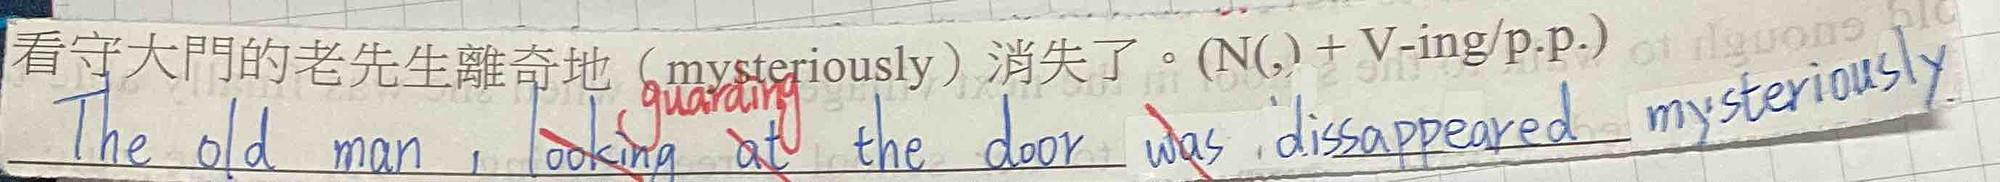 看守大門的老先生離奇地（mysteriously）消失了。(N(,) + V-ing/p.p.)
guarding
The old man , looking at the door was dissappeared mysteriously.